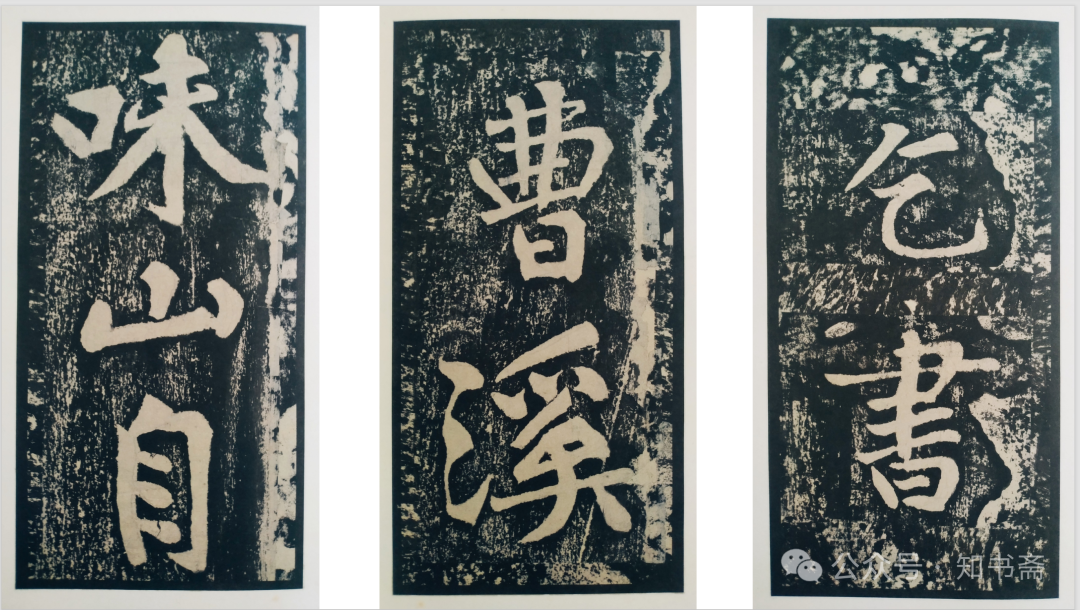 味山自
曹溪
乞書
公众号 · 知书斋